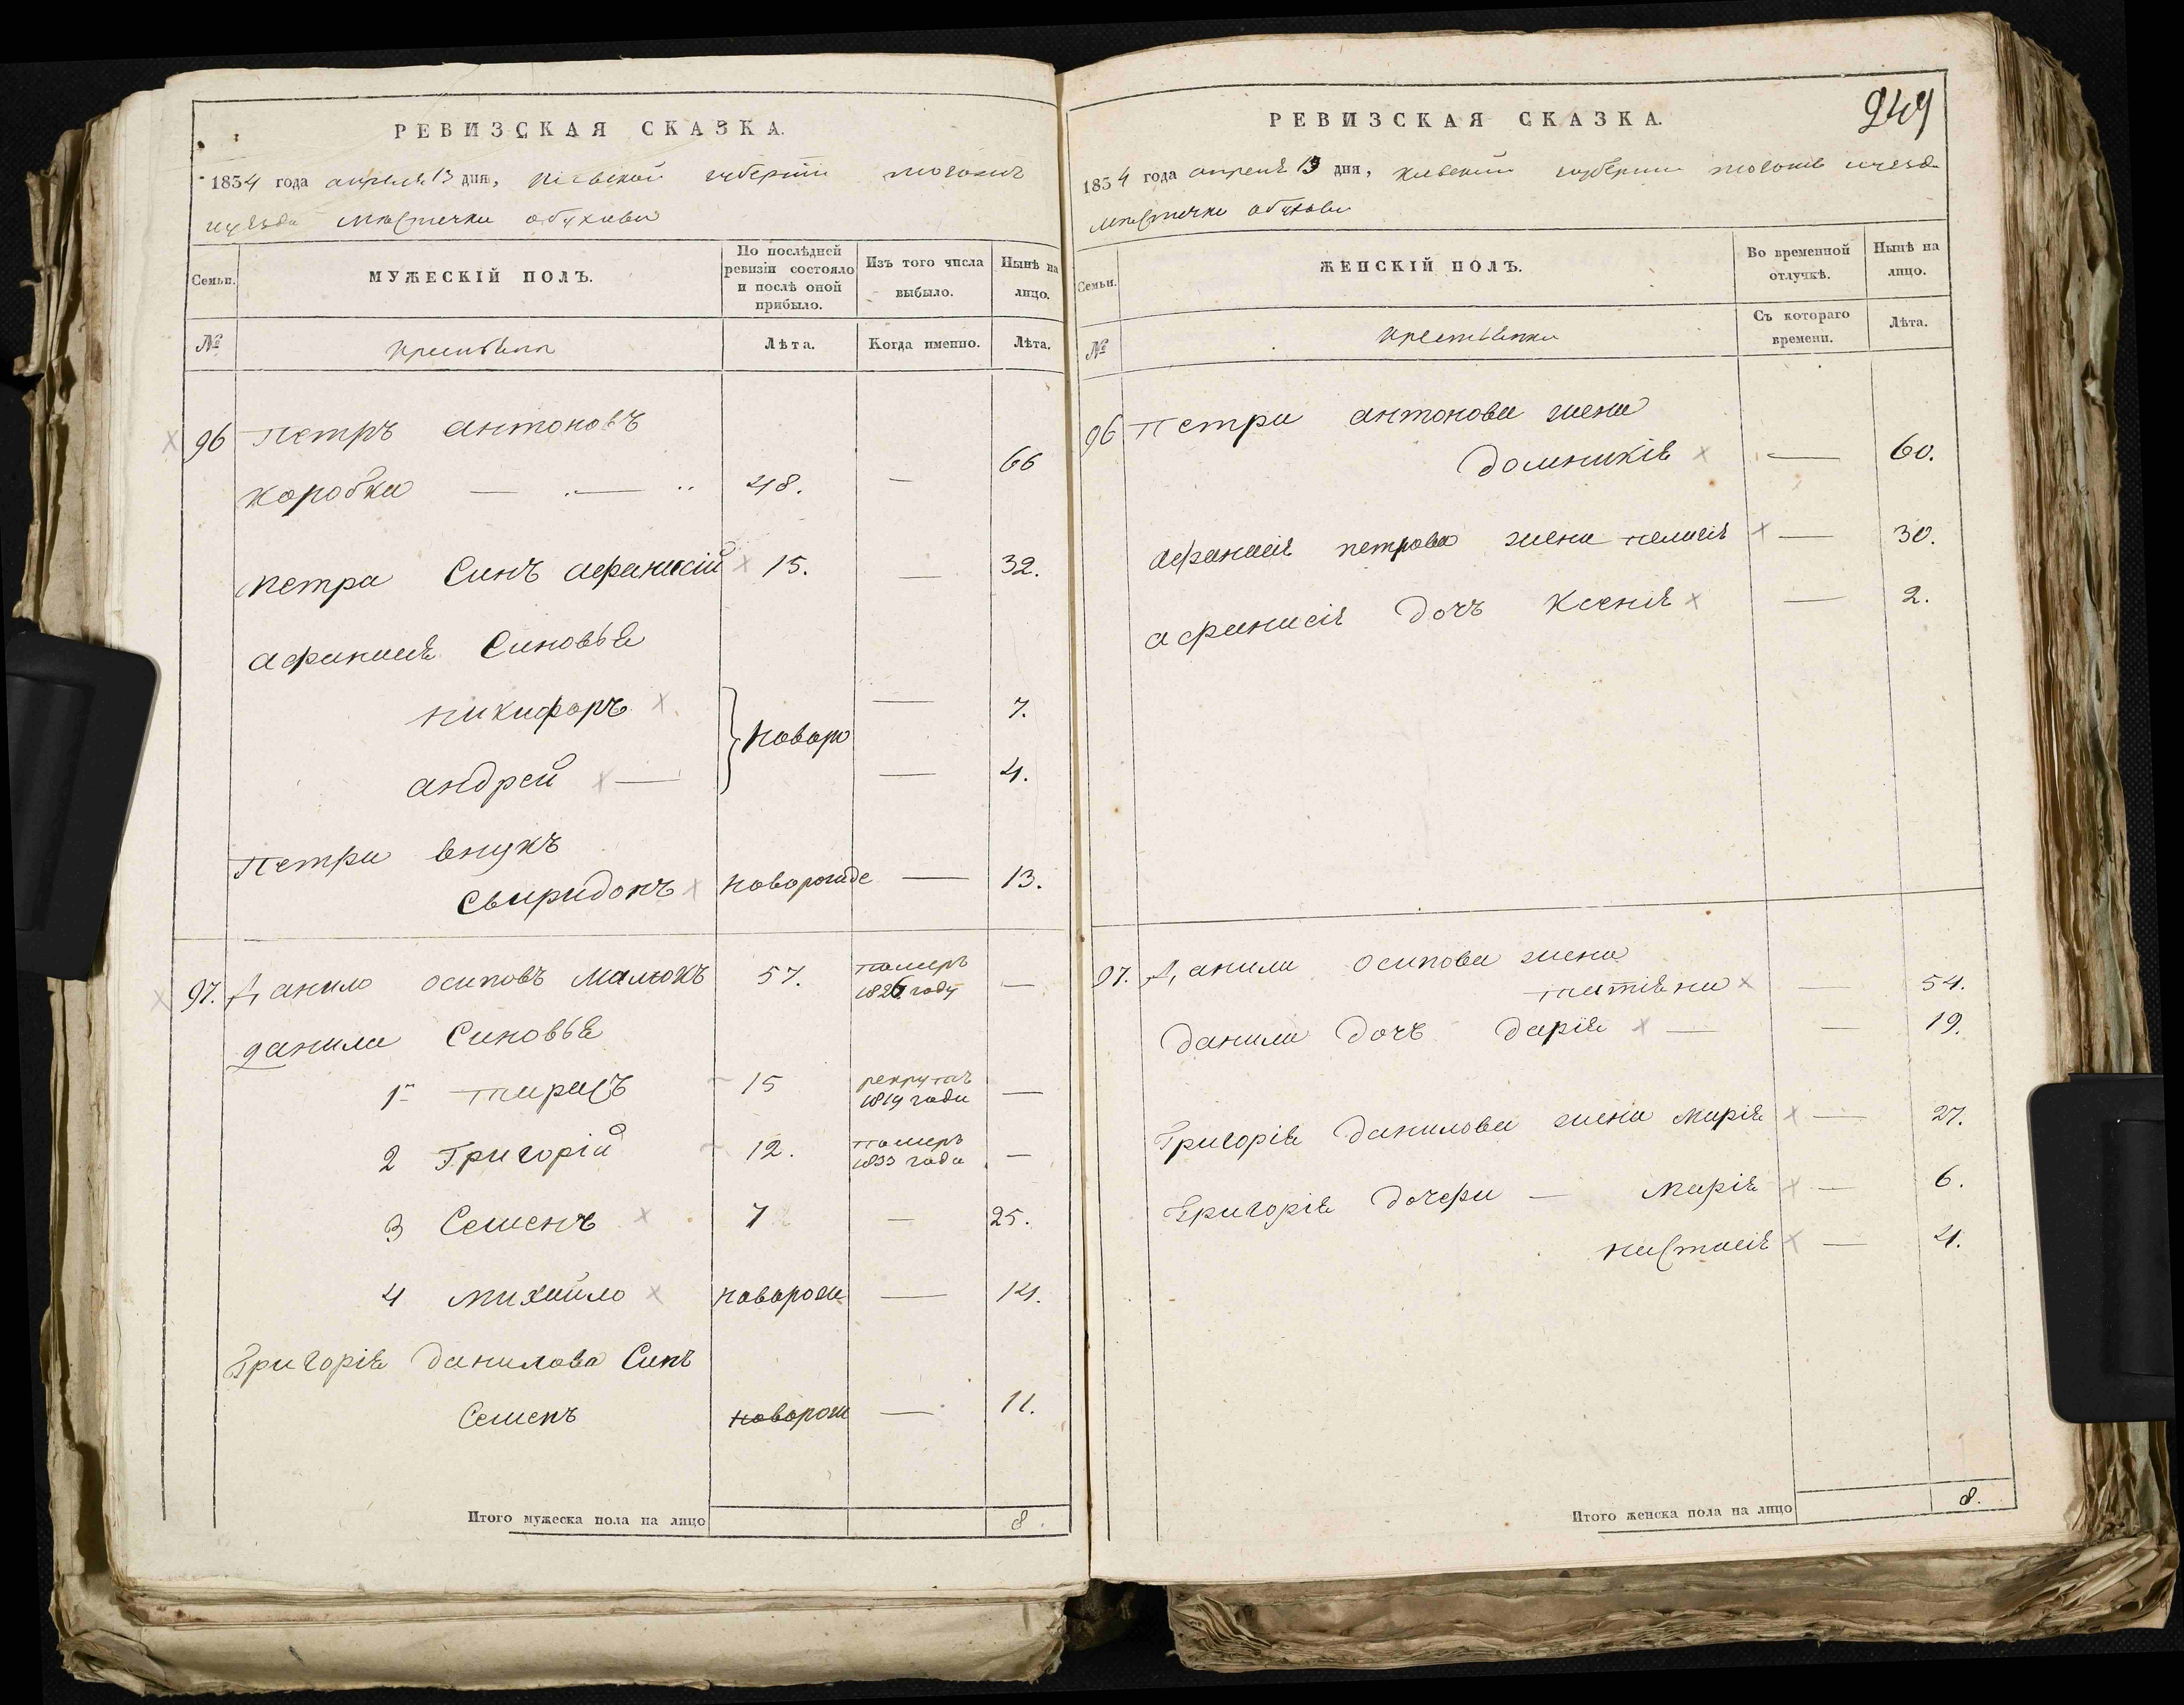 РЕВИЗСКАЯ СКАЗКА.
1834 года апреля 13 дня, Киевской губернии тогожъ
уезда местечка обухова
Семьи. МУЖЕСКІЙ ПОЛЪ. По послѣдней ревизіи состояло и послѣ оной прибыло. Изъ того числа выбыло. Нынѣ на лицо.
№ крестьяне Лѣта. Когда именно. Лѣта.
96 Петръ антоновъ
коробка 48. — 66
петра Синъ афанасій 15. — 32.
афанасія Синовья
никифоръ — 7.
новоро
андрей — — 4.
Петра внукъ
Свиридонъ новорожде — 13.
97. Данило осиповъ малюкъ 57. померъ 1826 году —
данила Синовья
1й тарасъ 15 рекрутъ 1819 года —
2 Григорій 12. померъ 1833 года —
3 Семенъ 7 — 25.
4 михайло новорож — 14.
Григорія данилова Синъ
Семенъ новорож — 11.
Итого мужеска пола на лицо 8.
249
РЕВИЗСКАЯ СКАЗКА.
1834 года апреля 13 дня, киевской губернии тогожъ уезда
местечка обухова
Семьи. ЖЕНСКІЙ ПОЛЪ. Во временной отлучкѣ. Нынѣ на лицо.
№ крестьянки Съ котораго времени. Лѣта.
96 Петра антонова жена
домникія — 60.
афанасія петрова жена — 30.
афанасія дочъ Ксенія — 2.
97. Данила осипова жена
татіяна — 54.
данила дочъ дарія — — 19.
Григорія данилова жена марія — 27.
Григорія дочери — марія — 6.
настасія — 4.
Итого женска пола на лицо 8.